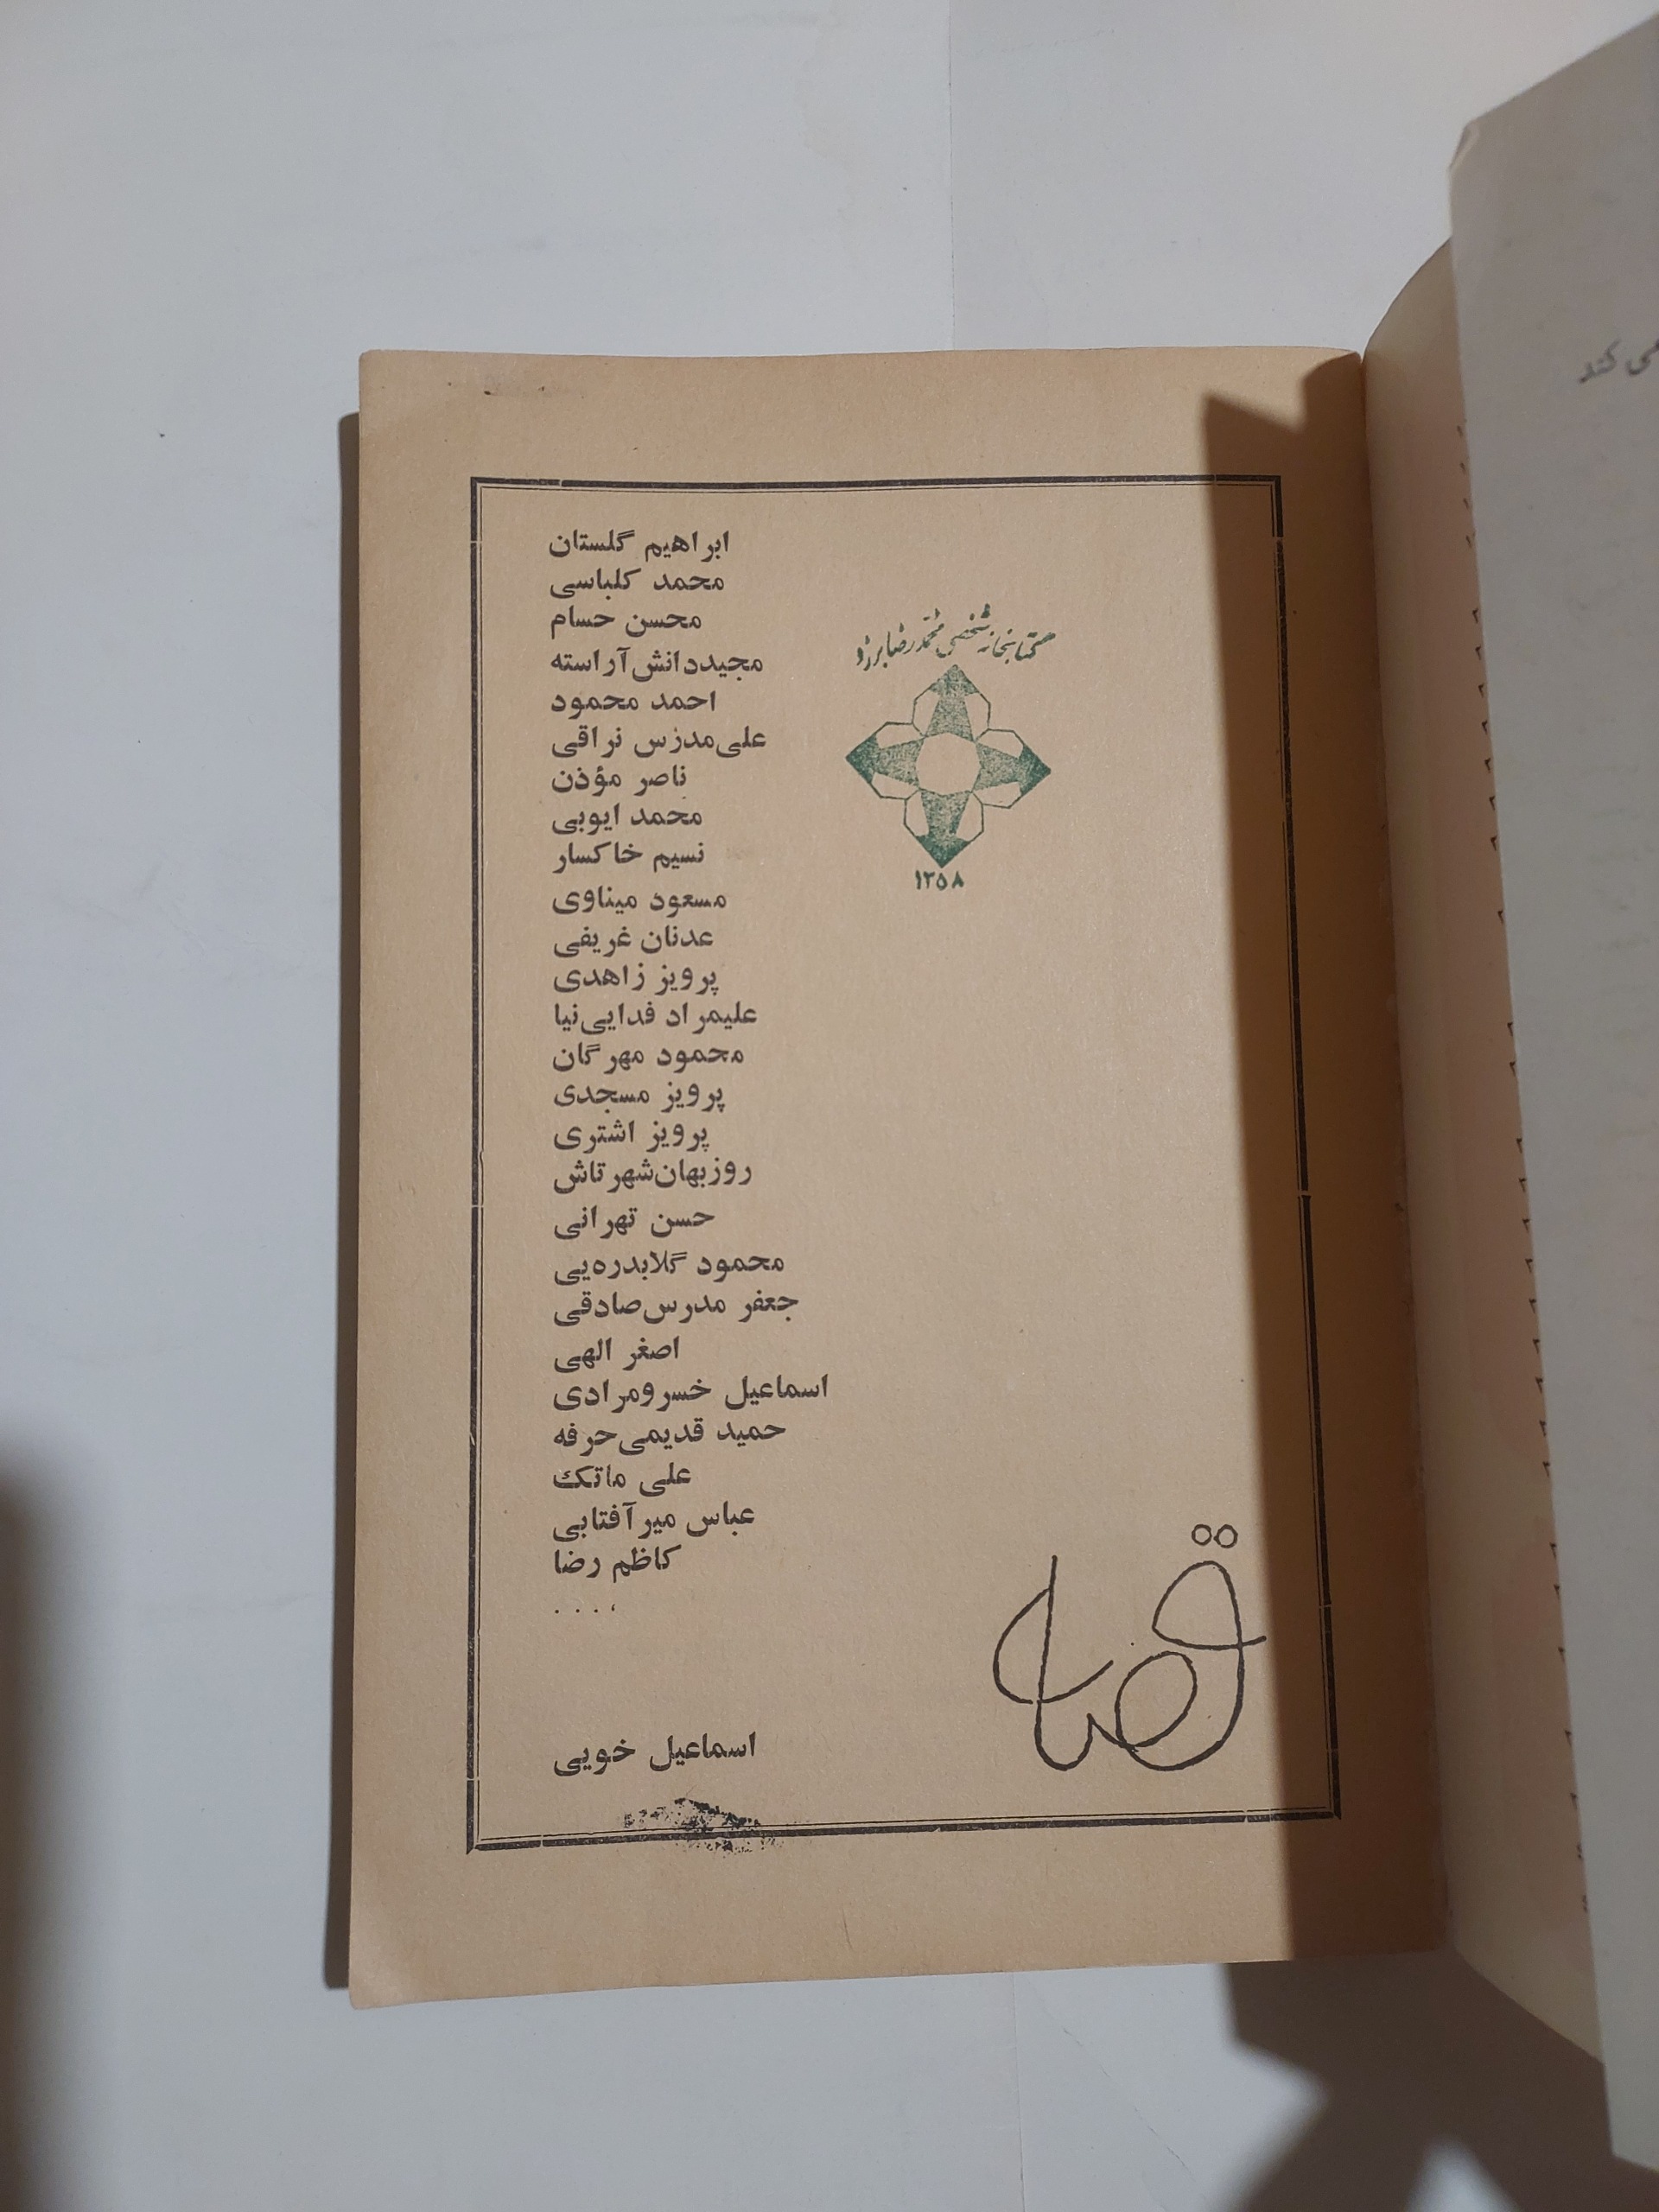 ابراهیم گلستان
محمد کلباسی
محسن حسام
مجیددانش‌آراسته
احمد محمود
علی‌مدرس نراقی
ناصر مؤذن
محمد ایوبی
نسیم خاکسار
مسعود میناوی
عدنان غریفی
پرویز زاهدی
علیمراد فدایی‌نیا
محمود مهرگان
پرویز مسجدی
پرویز اشتری
روزبهان‌شهرتاش
حسن تهرانی
محمود گلابدره‌یی
جعفر مدرس‌صادقی
اصغر الهی
اسماعیل خسرومرادی
حمید قدیمی‌حرفه
علی ماتک
عباس میرآفتابی
کاظم رضا
، . . .
اسماعیل خویی
کتابخانه شخصی محمدرضا
۱۳۵۸
قصه
می کند